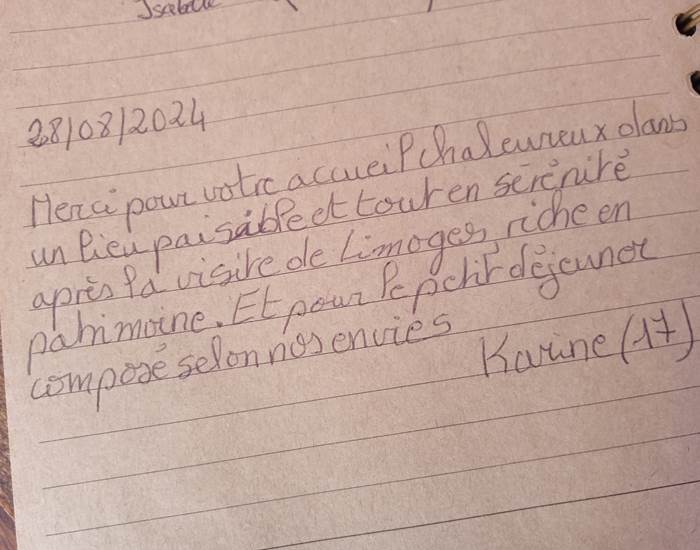 Isabelle
28/08/2024
Merci pour votre accueil chaleureux dans
un lieu paisible et tout en sérénité
après la visite de Limoges, riche en
patrimoine. Et pour le petit déjeuner
composé selon nos envies
Karine (17)